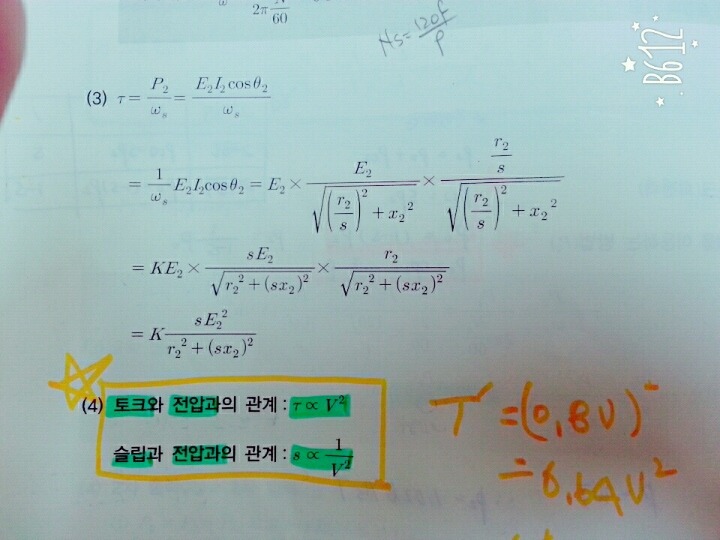 ω
2π N/60
Ns = 120f/P
B612
(3) τ = P₂/ω_s = E₂I₂cosθ₂/ω_s
= 1/ω_s E₂I₂cosθ₂ = E₂ × E₂/√((r₂/s)² + x₂²) × (r₂/s)/√((r₂/s)² + x₂²)
= KE₂ × sE₂/√(r₂² + (sx₂)²) × r₂/√(r₂² + (sx₂)²)
= K sE₂²/(r₂² + (sx₂)²)
(4) 토크와 전압과의 관계 : τ ∝ V²
슬립과 전압과의 관계 : s ∝ 1/V²
T' = (0,8V)²
= 0,64V²